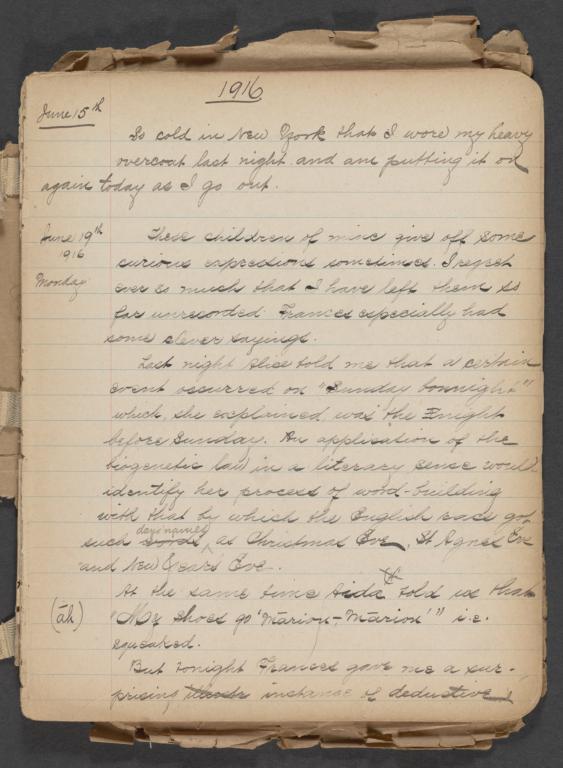 1916
June 15th
So cold in New York that I wore my heavy
overcoat last night and am putting it on
again today as I go out.
June 19th
1916
Monday
These children of mine give off some
curious expressions sometimes. I regret
ever so much that I have left them so
far unrecorded. Frances especially had
some clever sayings.
Last night Alice told me that a certain
event occurred on "Sunday tonnight"
which, she explained, was the night
before Sunday. An application of the
biogenetic law in a literary sense would
identify her process of word-building
with that by which the English race got
days names
such words, as Christmas Eve, St Agnes Eve
and New Years Eve.
At the same time Aida told us that
(äh)
"My shoes go 'Marion-Marion'" i.e.
squeaked.
But tonight Frances gave me a sur-
prising instance of deductive